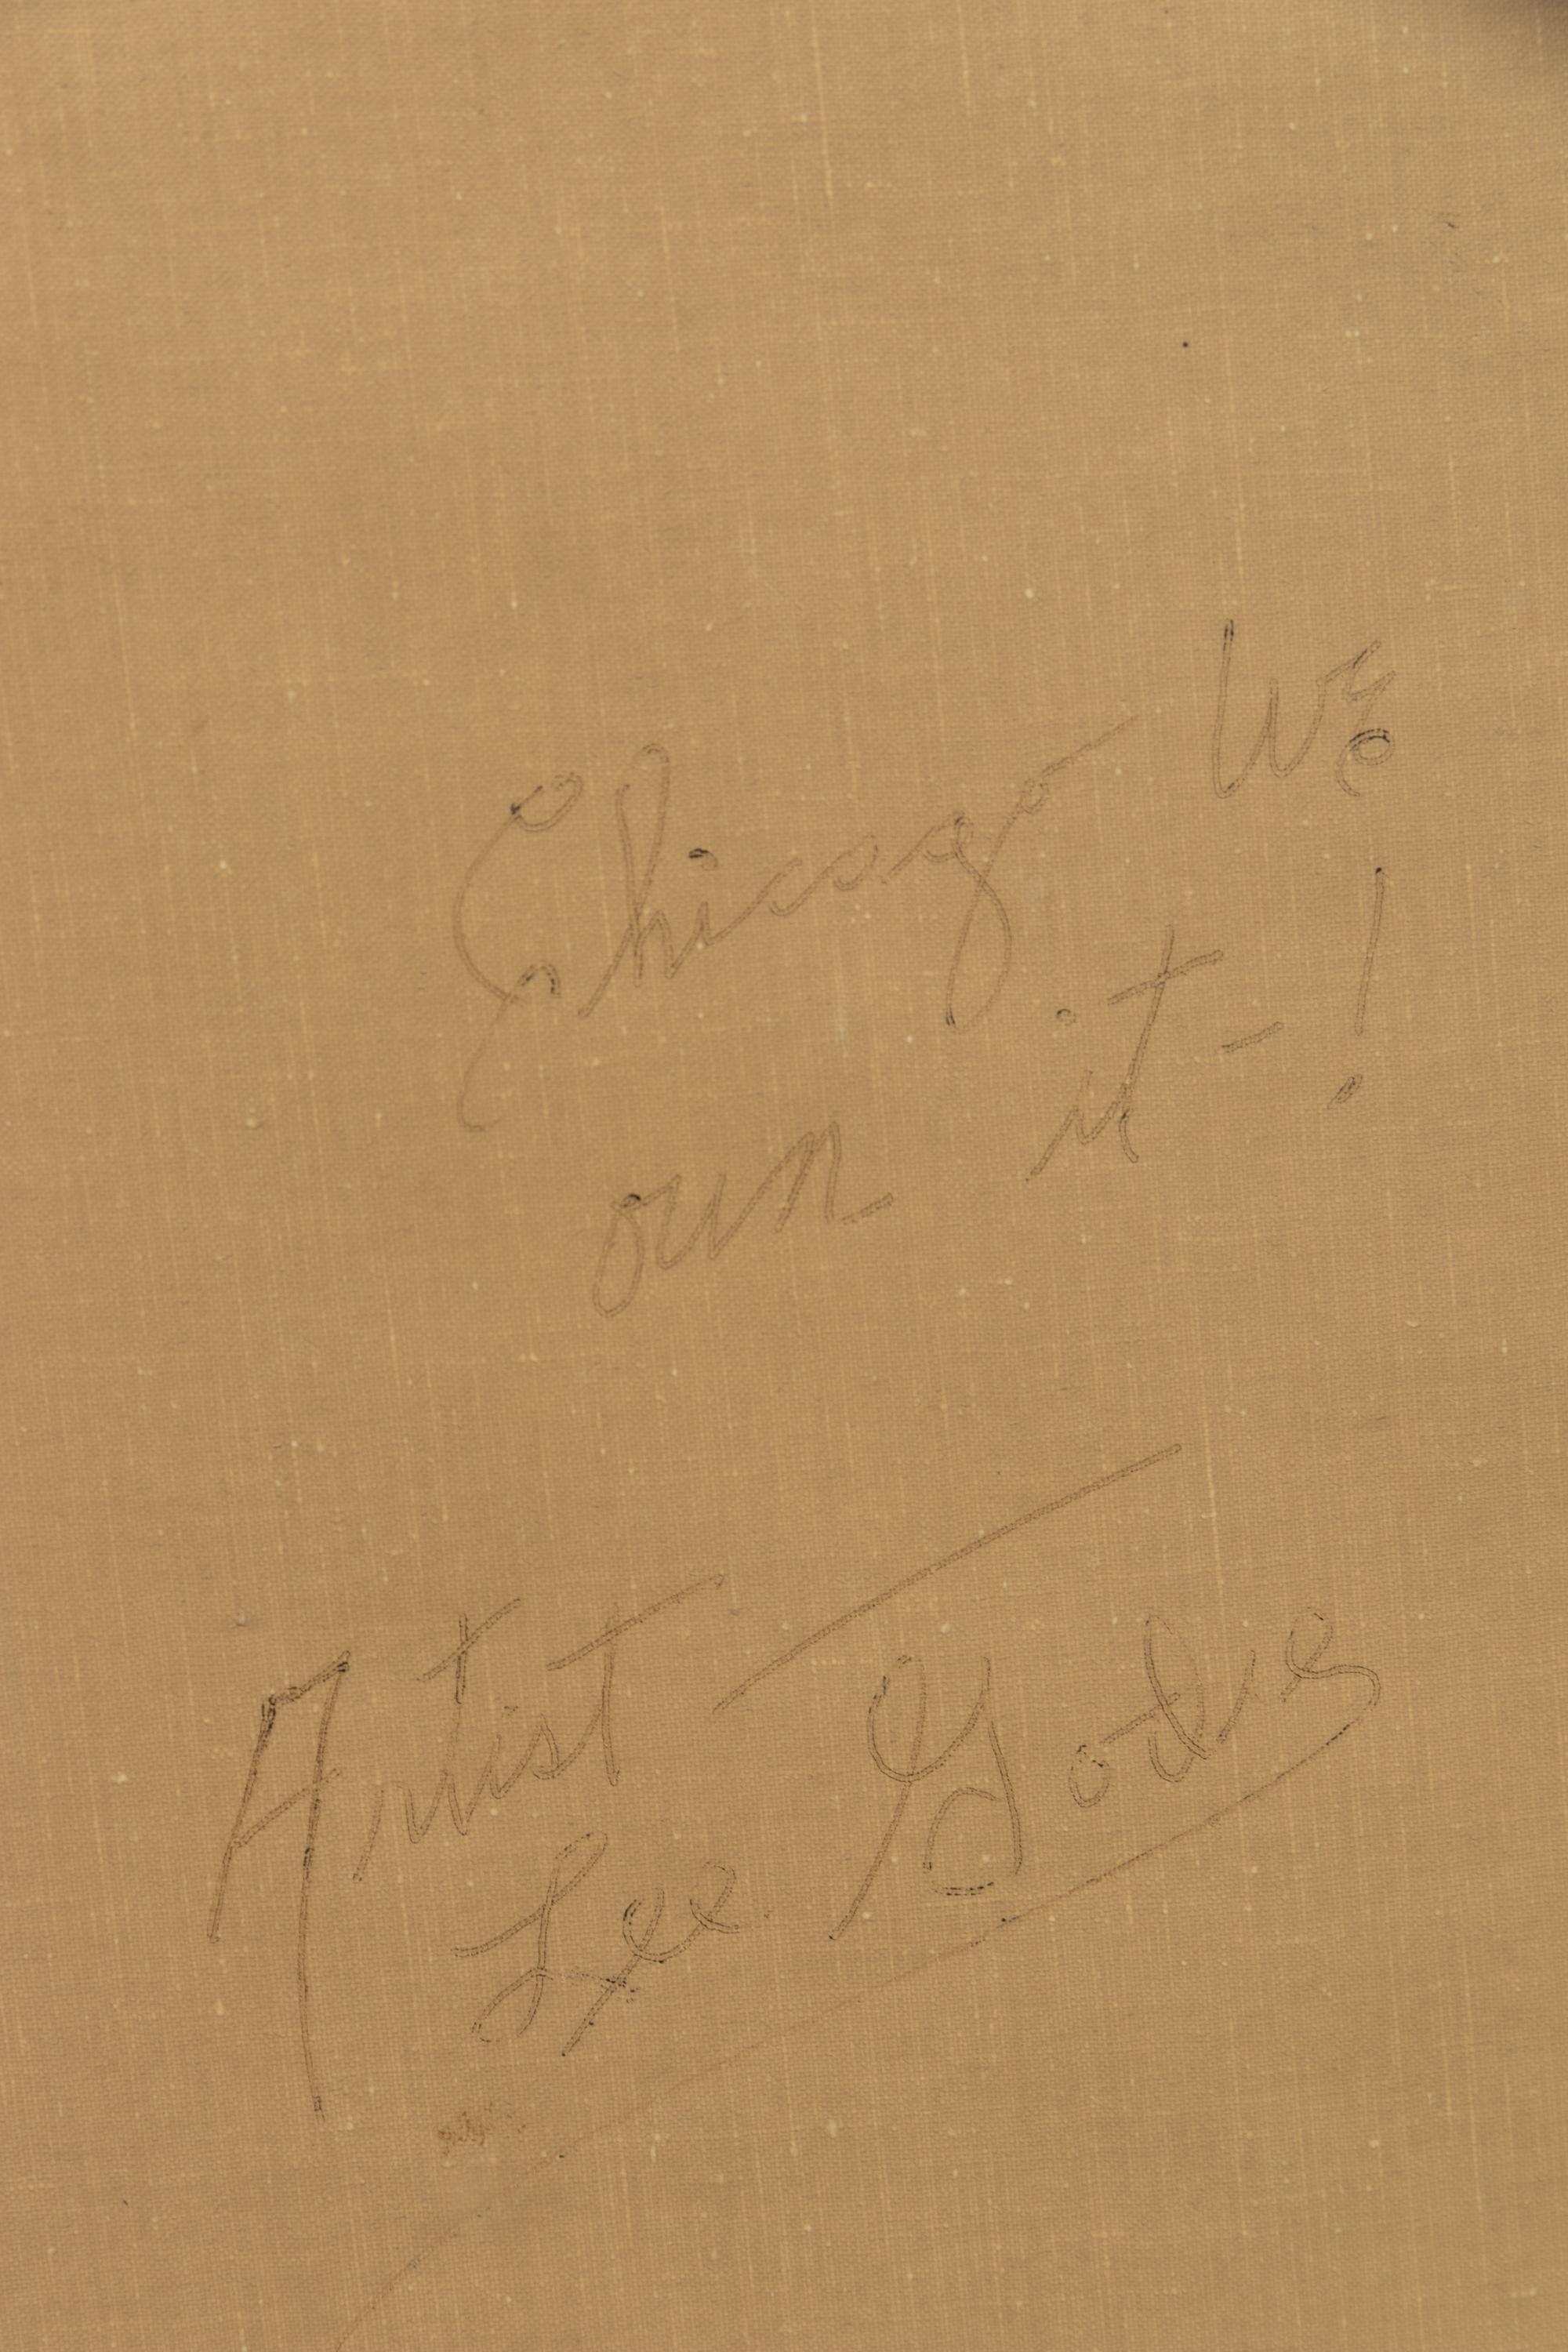 Chicago — We
own it — !
Artist —
Lee Godie